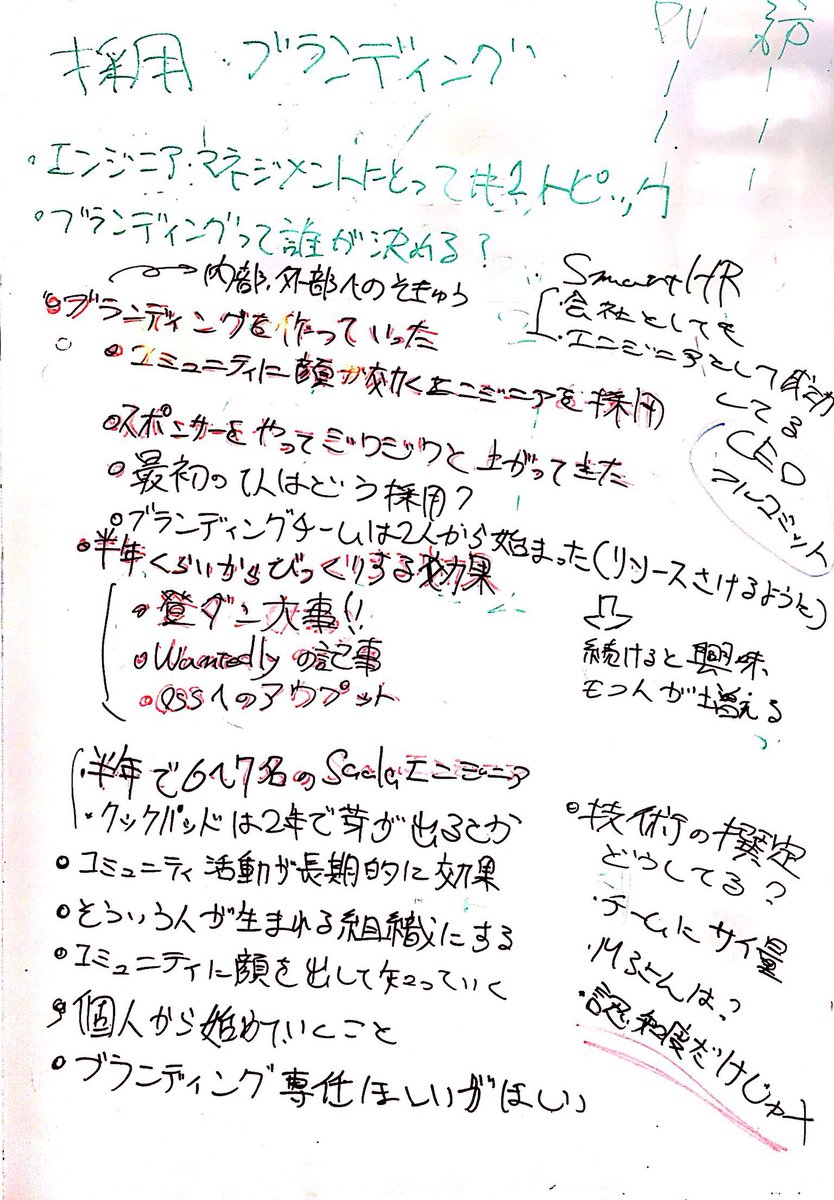 採用・ブランディング
PV
・エンジニア・マネジメントにとって共有トピック
・ブランディングって誰が決める?
→内部、外部へのそきゅう
・ブランディングを作っていった
・コミュニティに顔が効くエンジニアを採用
・スポンサーをやってジワジワと上がってきた
・最初の1人はどう採用?
・ブランディングチームは2人から始まった(リソースさけるように)
⇩
続けると興味、
もつ人が増える
・半年くらいからびっくりする効果
・登ダン大事!!
・Wantedlyの記事
・OSSへのアウプット
・半年で6〜7名のScalaエンジニア
・クックパッドは2年で芽が出るとか
・コミュニティ活動が長期的に効果
・そういう人が生まれる組織にする
・コミュニティに顔を出して知っていく
・個人から始めていくこと
・ブランディング専任ほしいがほしい
SmartHR
・会社としても
・エンジニアとして成功
してる
CEO
フルコミット
・技術の撰定
どうしてる?
・チームにサイ量
・Mさんは?
・認知度だけじゃ